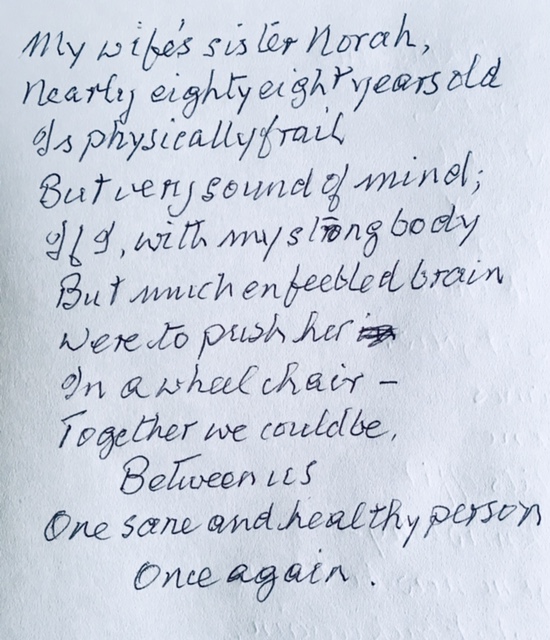 My wife's sister Norah,
Nearly eighty eight years old
Is physically frail
But very sound of mind;
If I, with my strong body
But much enfeebled brain
Were to push her
In a wheel chair –
Together we could be,
Between us
One sane and healthy person
Once again.